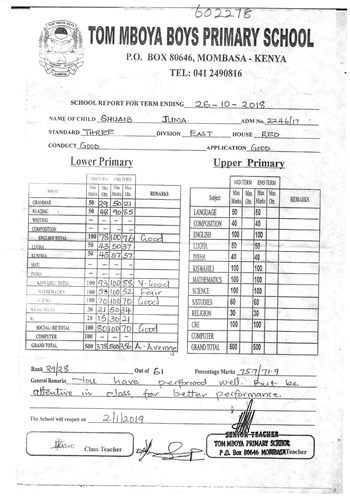 602278
TOM MBOYA BOYS PRIMARY SCHOOL
P.O. BOX 80646, MOMBASA - KENYA
TEL: 041 2490816
SCHOOL REPORT FOR TERM ENDING 26-10-2018
NAME OF CHILD SHUAIB JUMA ADM No. 2246/17
STANDARD THREE DIVSION EAST HOUSE RED
CONDUCT GOOD APPLICATION GOOD
Lower Primary Upper Primary
MID TERM END TERM
Subject Max Marks Max Marks REMARKS
GRAMMAR 50 29 50 21
READING 50 48 90 85
WRITING
COMPOSITION
ENGLISH TOTAL 100 78 100 76 Good
LUGHA 50 43 50 37
KUSOMA 50 45 57 57
HATI
INSHA
KISWAHILI TOTAL 100 93 100 88 V. Good
MATHEMATICS 100 100 52 Fair
SCIENCE 100 70 100 70 Good
30 21 50 34
20 15 30 21
SOCIAL / RE TOTAL 100 80 100 70 Good
COMPUTER 100
GRAND TOTAL 500 378 500 356 A. Average
MID TERM END TERM
Subject Max Marks Max Marks REMARKS
LANGUAGE 50 50
COMPOSITION 40 40
ENGLISH 100 100
LUGHA 50 50
INSHA 40 40
KISWAHILI 100 100
MATHEMATICS 100 100
SCIENCE 100 100
S/STUDIES 60 60
RELIGION 30 30
CRE 100 100
COMPUTER
GRAND TOTAL 500 500
Rank 29/28 Out of 61 Percentage Marks 75.7/71.9
General Remaria You have performed well. But be
attentive in class for better performance.
The School will reopen on 2/1/2019
Class Teacher
SENIOR TEACHER
TOM MBOYA PRIMARY SCHOOL
P.O. Box 80646 MOMBASA Teacher